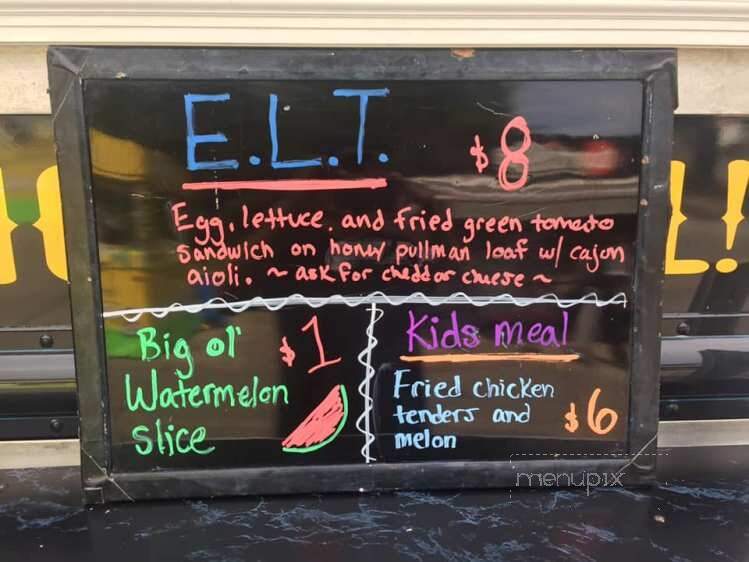 E.L.T.
$8
Egg, lettuce, and fried green tomato
sandwich on honey pullman loaf w/ cajun
aioli. ~ ask for cheddar cheese ~
Big ol'
$1
Watermelon
slice
Kids meal
Fried chicken
tenders and
melon
$6
L!
menupix